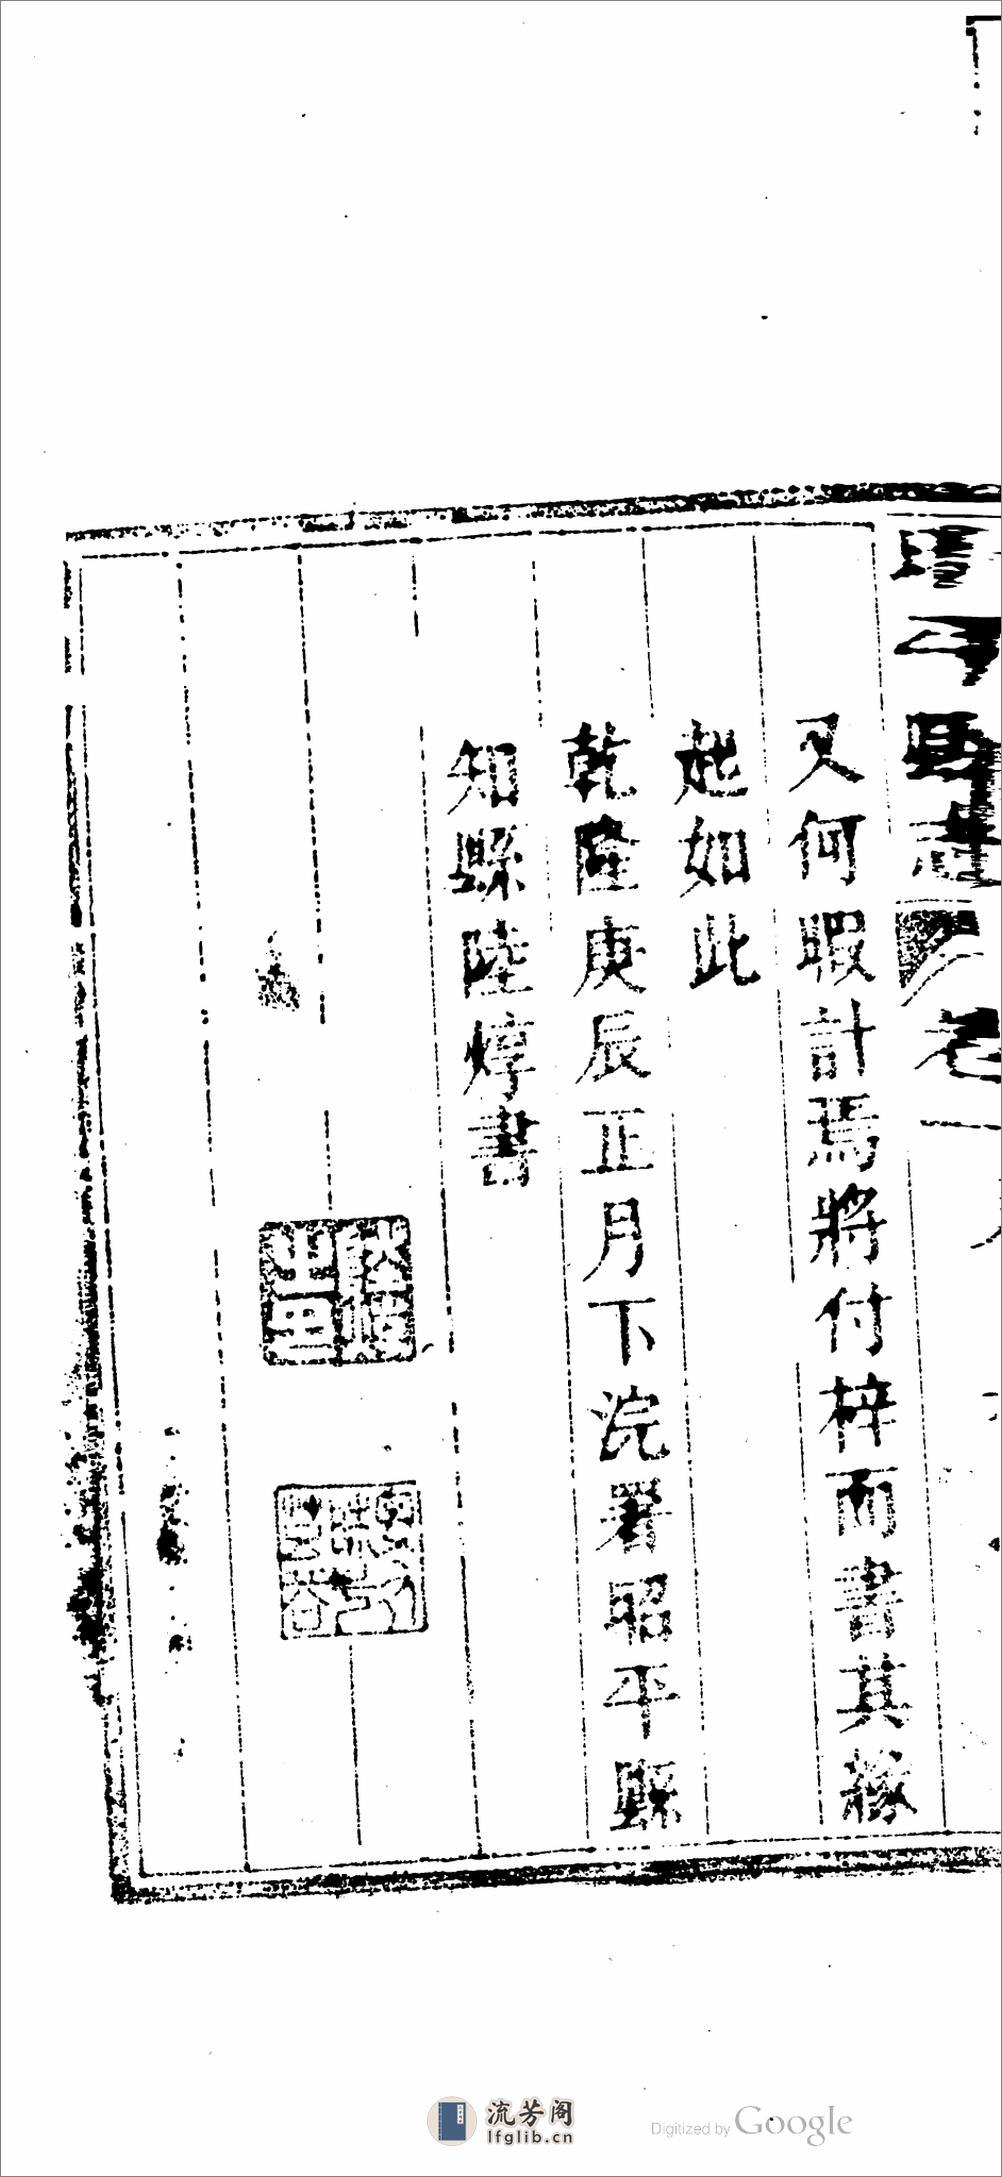 縣志
卷
又何暇計焉將付梓而書其緣
起如此
乾隆庚辰正月下浣署昭平縣
知縣陸焞書
流芳阁
lfglib.cn
Digitized by Google